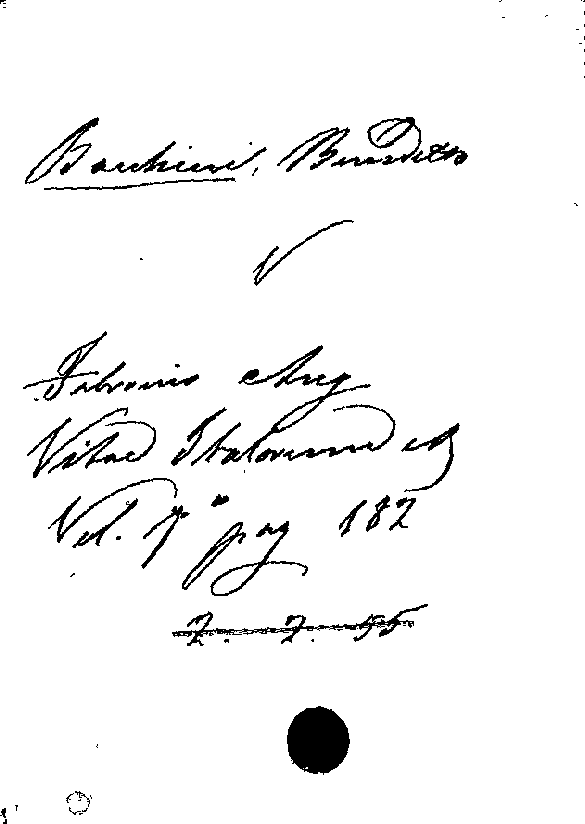 Bacchini, Benedetto
V
Fabronio Ang
Vitae Italorum
Vol. 7° pag 182
Z. Z. 55